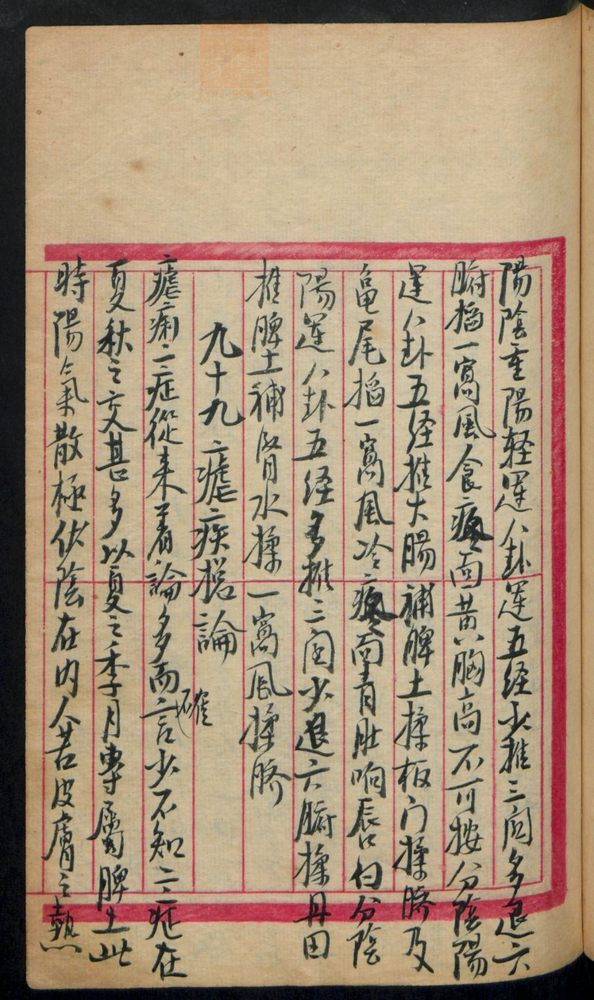 陽陰重陽軽運八卦運五経少推三関多退六
腑掐一窩風食瘧面黄胸高不可按分陰陽
運八卦五经推大腸補脾土揉板门揉臍及
龟尾掐一窩風冷瘧面青肚响唇白分陰
陽運八卦五经多推三関少退六腑揉丹田
推脾土補腎水揉一窩風揉臍
九十九瘧疾総論
瘧痢二症從来著論多而確言少不知二症在
夏秋之交甚多以夏之季月專属脾土此
時陽氣散極伏陰在内人若皮膚之熱